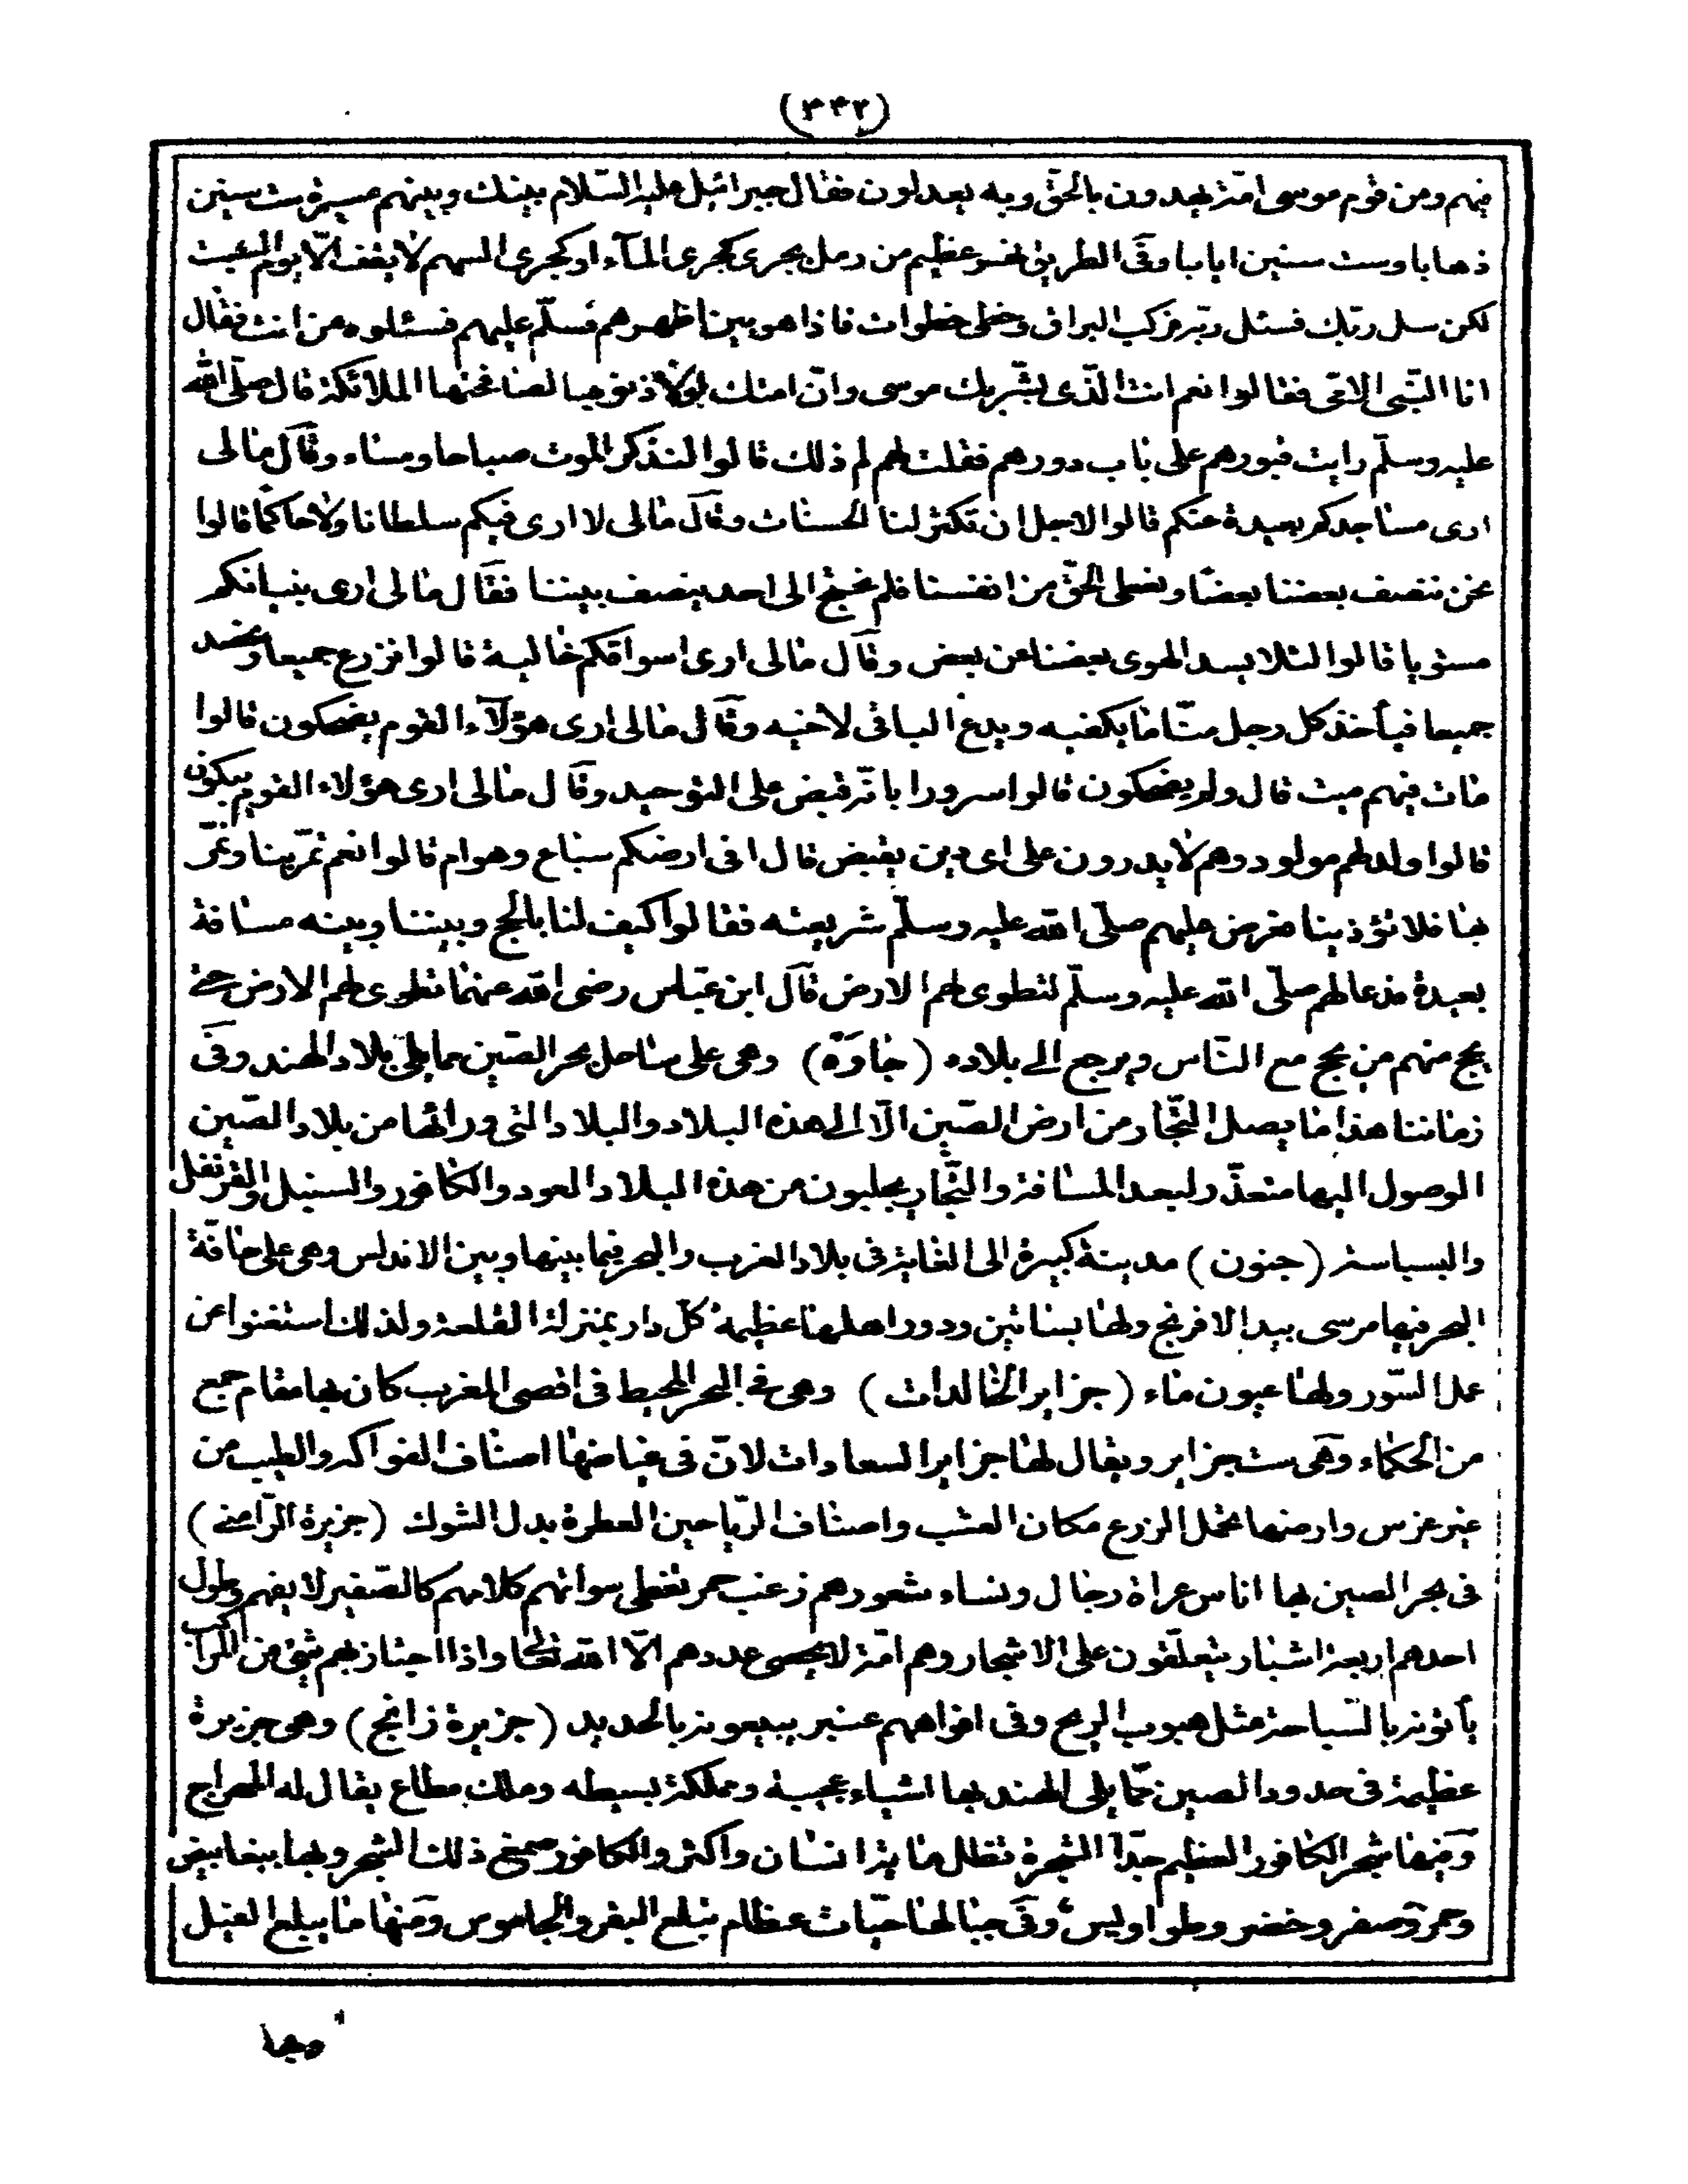 (٣٤٢)
فيهم ومن قوم موسى امّة يهدون بالحقّ وبه يعدلون فقال جبرائيل عليه السّلام بينك وبينهم مسيرة ست سنين
ذهابا وست سنين ايابا وفى الطريق نهر عظيم من رمل يجرى كجرى المآء او كجرى السهم لا يقف الّا يوم السّبت
لكن سل ربّك فسئل ربّه فركب البراق وخطى خطوات فاذا هو بين اظهرهم فسلّم عليهم فسئلوه من انت فقال
انا النّبى الامّى فقالوا نعم انت الّذى بشّر بك موسى وانّ امتك لولا ذنوبها لصافحتها الملائكة قال صلّى الله
عليه وسلّم رايت قبورهم على باب دورهم فقلت لهم لم ذلك قالوا لنذكر الموت صباحا ومساء وقال مالى
ارى مساجدكم بعيدة عنكم قالوا لاجل ان تكثر لنا الحسنات وقال مالى لا ارى فيكم سلطانا ولا حاكما قالوا
نحن ننصف بعضنا بعضا ونعطى الحقّ من انفسنا فلم نحتج الى احد ينصف بيننا فقال مالى ارى بنيانكم
مستويا قالوا لئلا يسد الهوى بعضنا عن بعض وقال مالى ارى اسواقكم خالية قالوا نزرع جميعا ونحصد
جميعا فيأخذ كل رجل منّا ما يكفيه ويدع الباقى لاخيه وقال مالى ارى هؤلآء القوم يضحكون قالوا
مات فيهم ميت قال ولم يضحكون قالوا سرورا بانّه قبض على التوحيد وقال مالى ارى هؤلاء القوم يبكون
قالوا ولد لهم مولود وهم لا يدرون على اى دين يقبض قال افى ارضكم سباع وهوام قالوا نعم تمرّ بنا ونمرّ
بها فلا تؤذينا فعرض عليهم صلّى الله عليه وسلّم شريعته فقالوا كيف لنا بالحج وبيننا وبينه مسافة
بعيدة فدعا لهم صلّى الله عليه وسلّم لتطوى لهم الارض قال ابن عبّاس رضى الله عنهما تطوى لهم الارض حتى
يحج منهم من يحج مع النّاس ويرجع الى بلاده (جاوة) وهى على ساحل بحر الصّين مما يلى بلاد الهند وفى
زماننا هذا ما يصل التّجّار من ارض الصّين الّا الى هذه البلاد والبلاد التى ورائها من بلاد الصّين
الوصول اليها متعذّر لبعد المسافة والتّجّار يجلبون من هذه البلاد العود والكافور والسنبل والقرنفل
والبسباسة (جنون) مدينة كبيرة الى الغاية فى بلاد الغرب والبحر فيما بينها وبين الاندلس وهى على حافة
البحر فيها مرسى بيد الافرنج ولها بساتين ودور اهلها عظيمة كلّ دار بمنزلة القلعة ولذلك استغنوا عن
عمل السّور ولها عيون ماء (جزاير الخالدات) وهى فى البحر المحيط فى اقصى المغرب كان بها مقام جمع
من الحكماء وهى ست جزاير ويقال لها جزاير السعادات لانّ فى غياضها اصناف الفواكه والطيب من
غير غرس وارضها تحمل الزرع مكان العشب واصناف الرّياحين العطرة بدل الشوك (جزيرة الرّامنى)
فى بحر الصين بها اناس عراة رجال ونساء شعورهم زعنب حمر تغطى سواتهم كلامهم كالصّفير لا يفهم وطول
احدهم اربعة اشبار يتعلّقون على الاشجار وهم امّة لا يحصى عددهم الّا الله تعالى واذا اجتاز بهم شئ من المراكب
يأتونه بالسّباحة مثل هبوب الريح وفى افواههم عنبر يبيعونه بالحديد (جزيرة زانج) وهى جزيرة
عظيمة فى حدود الصين ممّا يلى الهند بها اشياء عجيبة ومملكة بسيطه وملك مطاع يقال له المهراج
ومنها شجر الكافور العظيم جدّا الشجرة تظلل ماية انسان واكثر والكافور صمغ ذلك الشجر وبها ببغا بيض
وحمر وصفر وخضر وطواويس وفى جبالها حيّات عظام تبلع البقر والجاموس ومنها ما يبلع الفيل
وبها